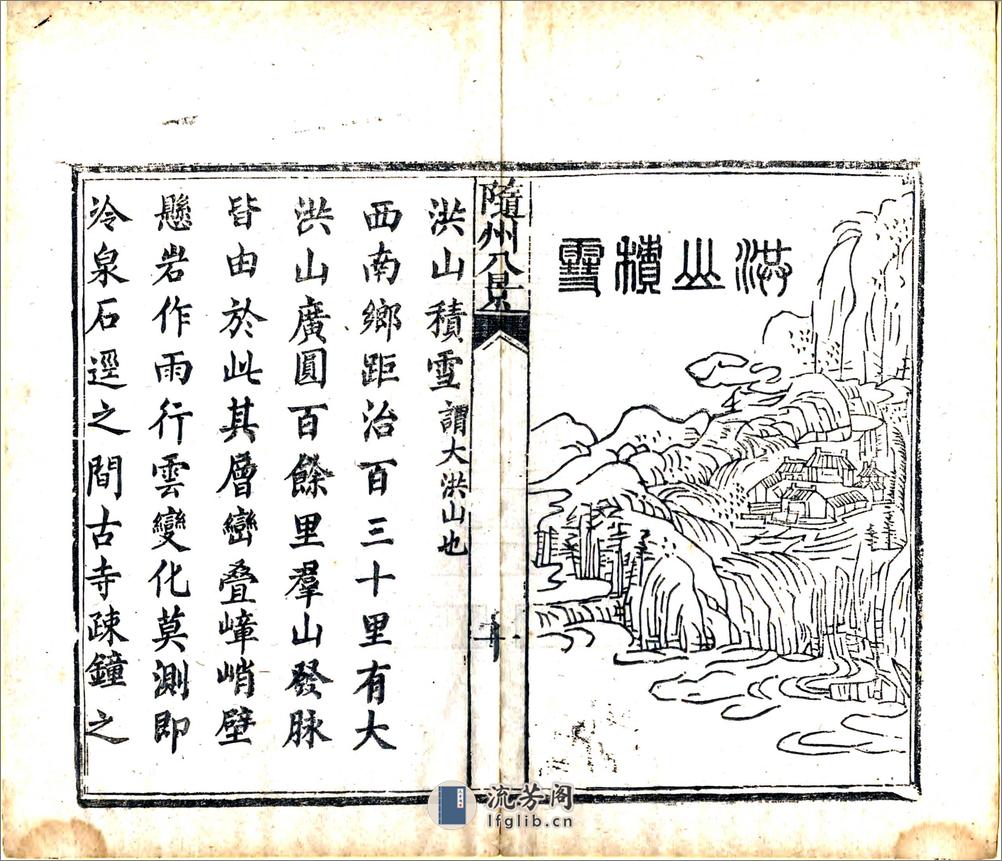 洪山積雪
隨州八景
洪山積雪謂大洪山也
西南鄉距治百三十里有大
洪山廣圓百餘里羣山發脉
皆由於此其層巒疊嶂峭壁
懸岩作雨行雲變化莫測即
冷泉石逕之間古寺疎鐘之
流芳阁
lfglib.cn